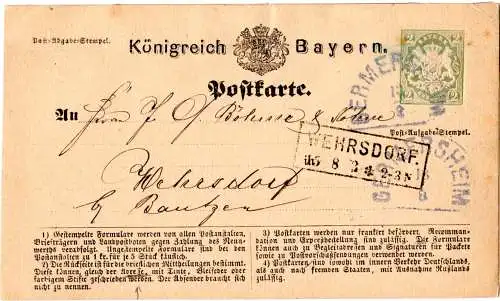 Post-Abgabe-Stempel.
Königreich Bayern.
BAYERN
Postkarte.
GERMERSHEIM
An Herrn J. G. Böhme & Sohn
Post-Aufgabe-Stempel.
WEHRSDORF.
8 2-3N
GERMERSHEIM
Wehrsdorf
b/ Bautzen
1) Gestempelte Formulare werden von allen Postanstalten,
Briefträgern und Landpostboten gegen Zahlung des Nenn-
werths verabfolgt. Ungestempelte Formulare sind bei den
Postanstalten zu 1 kr. für je 5 Stück käuflich.
2) Die Rückseite ist für die brieflichen Mittheilungen bestimmt.
Diese können, gleich der Adresse, mit Tinte, Bleifeder oder
farbigem Stifte geschrieben werden. Der Absender braucht sich
nicht zu nennen.
3) Postkarten werden nur frankirt befördert. Recomman-
dation und Expreßbestellung sind zulässig. Der Frankosatz
können auch zu Begleitadressen und Signaturen für Packete
sowie zu Postvorschußsendungen verwendet werden.
4) Postkarten, sind sowohl im innern Verkehr Deutschlands,
als auch nach fremden Staaten, mit Ausnahme Rußlands
zulässig.